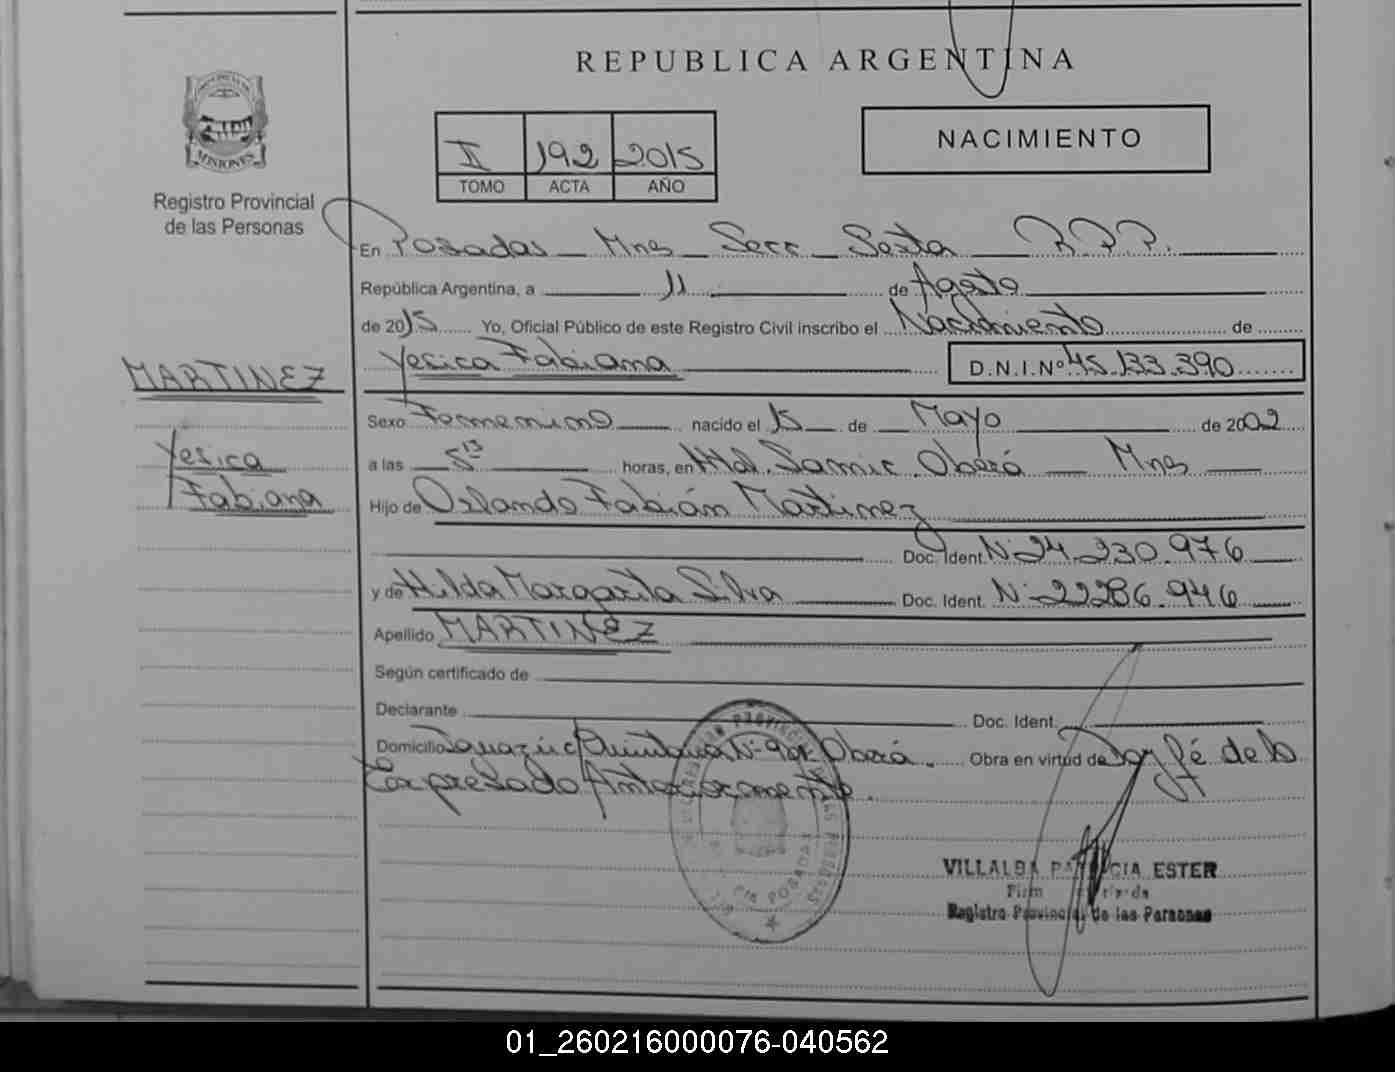 REPUBLICA ARGENTINA
MISIONES
Registro Provincial
de las Personas
II 192 2015
TOMO ACTA AÑO
NACIMIENTO
En Posadas Mnes Secc Sexta R.P.P.
República Argentina, a 11 de Agosto
de 2015 Yo, Oficial Público de este Registro Civil inscribo el Nacimiento de
Yesica Fabiana D.N.I.Nº 45.133.390
MARTINEZ
Yesica
Fabiana
Sexo Femenino nacido el 15 de Mayo de 2002
a las 5 13 horas, en Htal. Samic Oberá Mnes
Hijo de Orlando Fabián Martinez
Doc. Ident. Nº 24.230.976
y de Hilda Margarita Silva Doc. Ident. Nº 22286.946
Apellido MARTINEZ
Según certificado de
Declarante Doc. Ident.
Domicilio Quintana Nº Oberá. Obra en virtud de Doy fé de lo
Expresado Anteriormente.
POSADAS
VILLALBA PATRICIA ESTER
Registro Provincial de las Personas
01_260216000076-040562